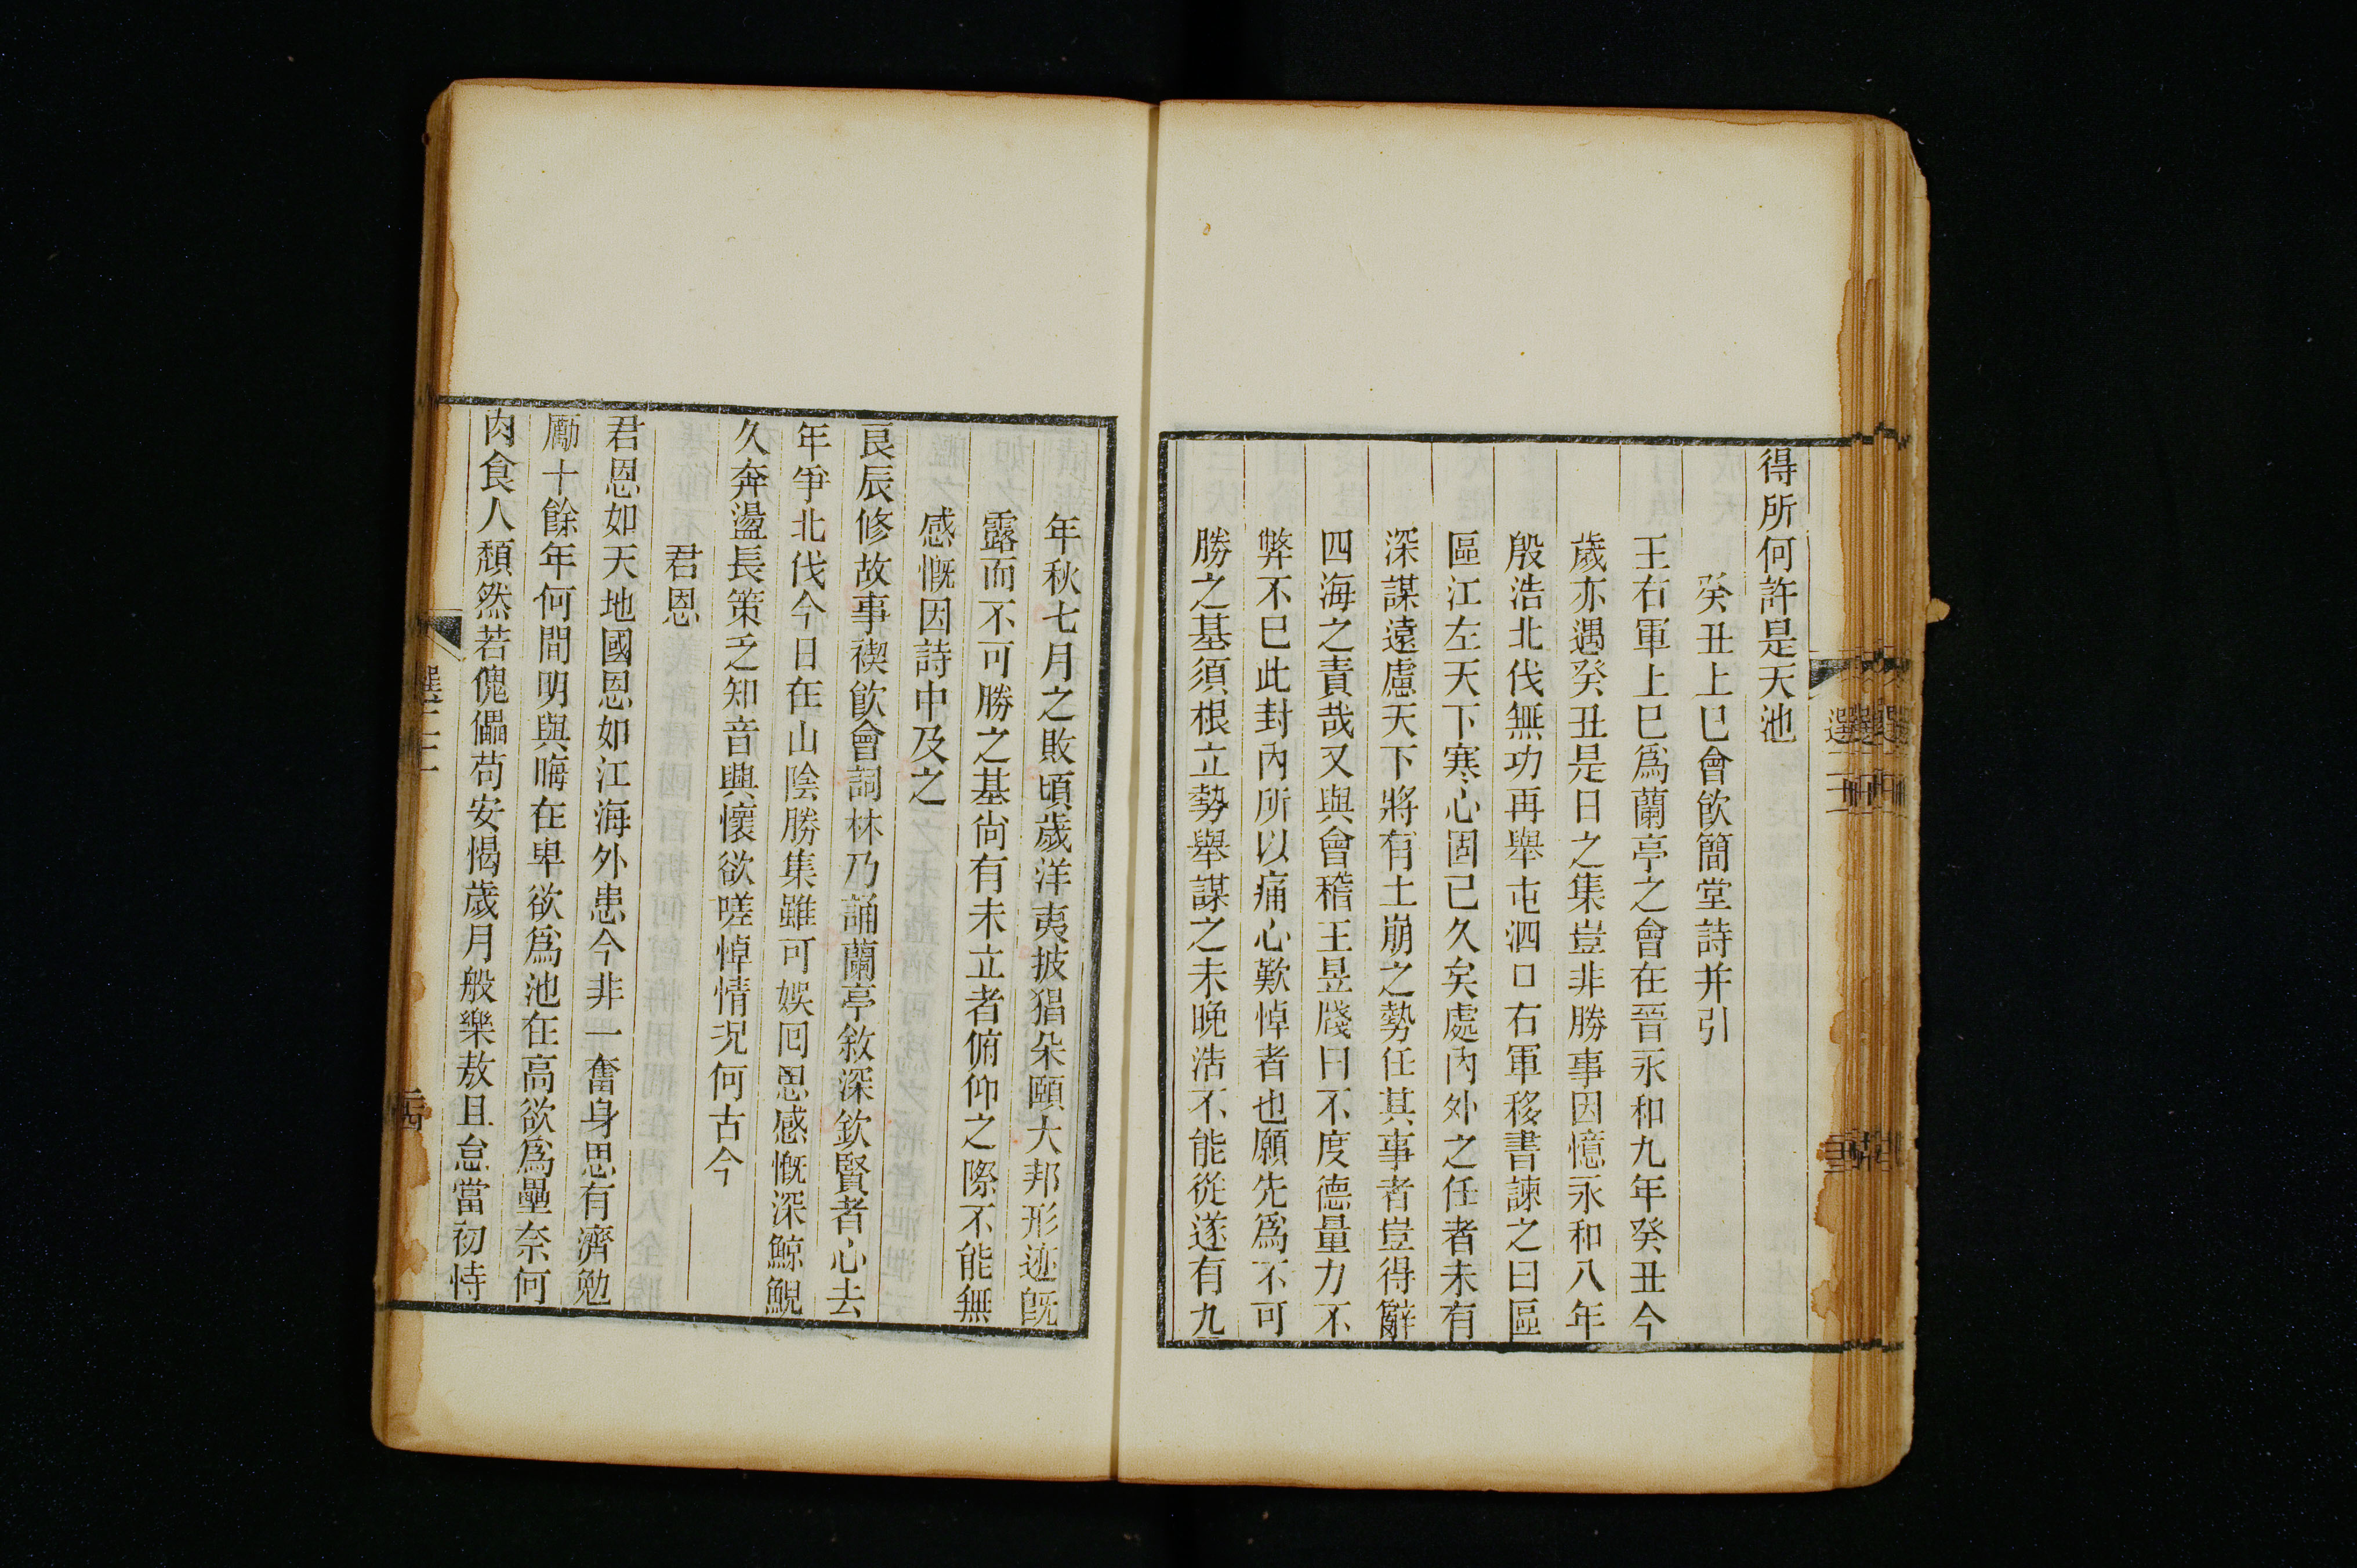 得所何許是天池
癸丑上巳會飮簡堂詩并引
王右軍上巳爲蘭亭之會在晉永和九年癸丑今
歲亦遇癸丑是日之集豈非勝事因憶永和八年
殷浩北伐無功再舉屯泗口右軍移書諫之曰區
區江左天下寒心固已久矣處內外之任者未有
深謀遠慮天下將有土崩之勢任其事者豈得辭
四海之責哉又與會稽王昱牋曰不度德量力不
弊不已此封內所以痛心歎悼者也願先爲不可
勝之基須根立勢舉謀之未晚浩不能從遂有九
年秋七月之敗頃歲洋夷披猖朵頤大邦形迹旣
露而不可勝之基尙有未立者俯仰之際不能無
感慨因詩中及之
良辰修故事禊飮會詞林乃誦蘭亭敘深欽賢者心去
年爭北伐今日在山陰勝集雖可娛囘思感慨深鯨鯢
久奔盪長策乏知音興懷欲嗟悼情況何古今
君恩
君恩如天地國恩如江海外患今非一奮身思有濟勉
勵十餘年何間明與晦在卑欲爲池在高欲爲壘奈何
肉食人頹然若傀儡苟安愒歲月般樂敖且怠當初恃